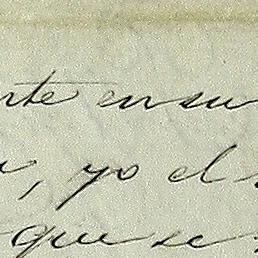 nte en su
, yo el
que se